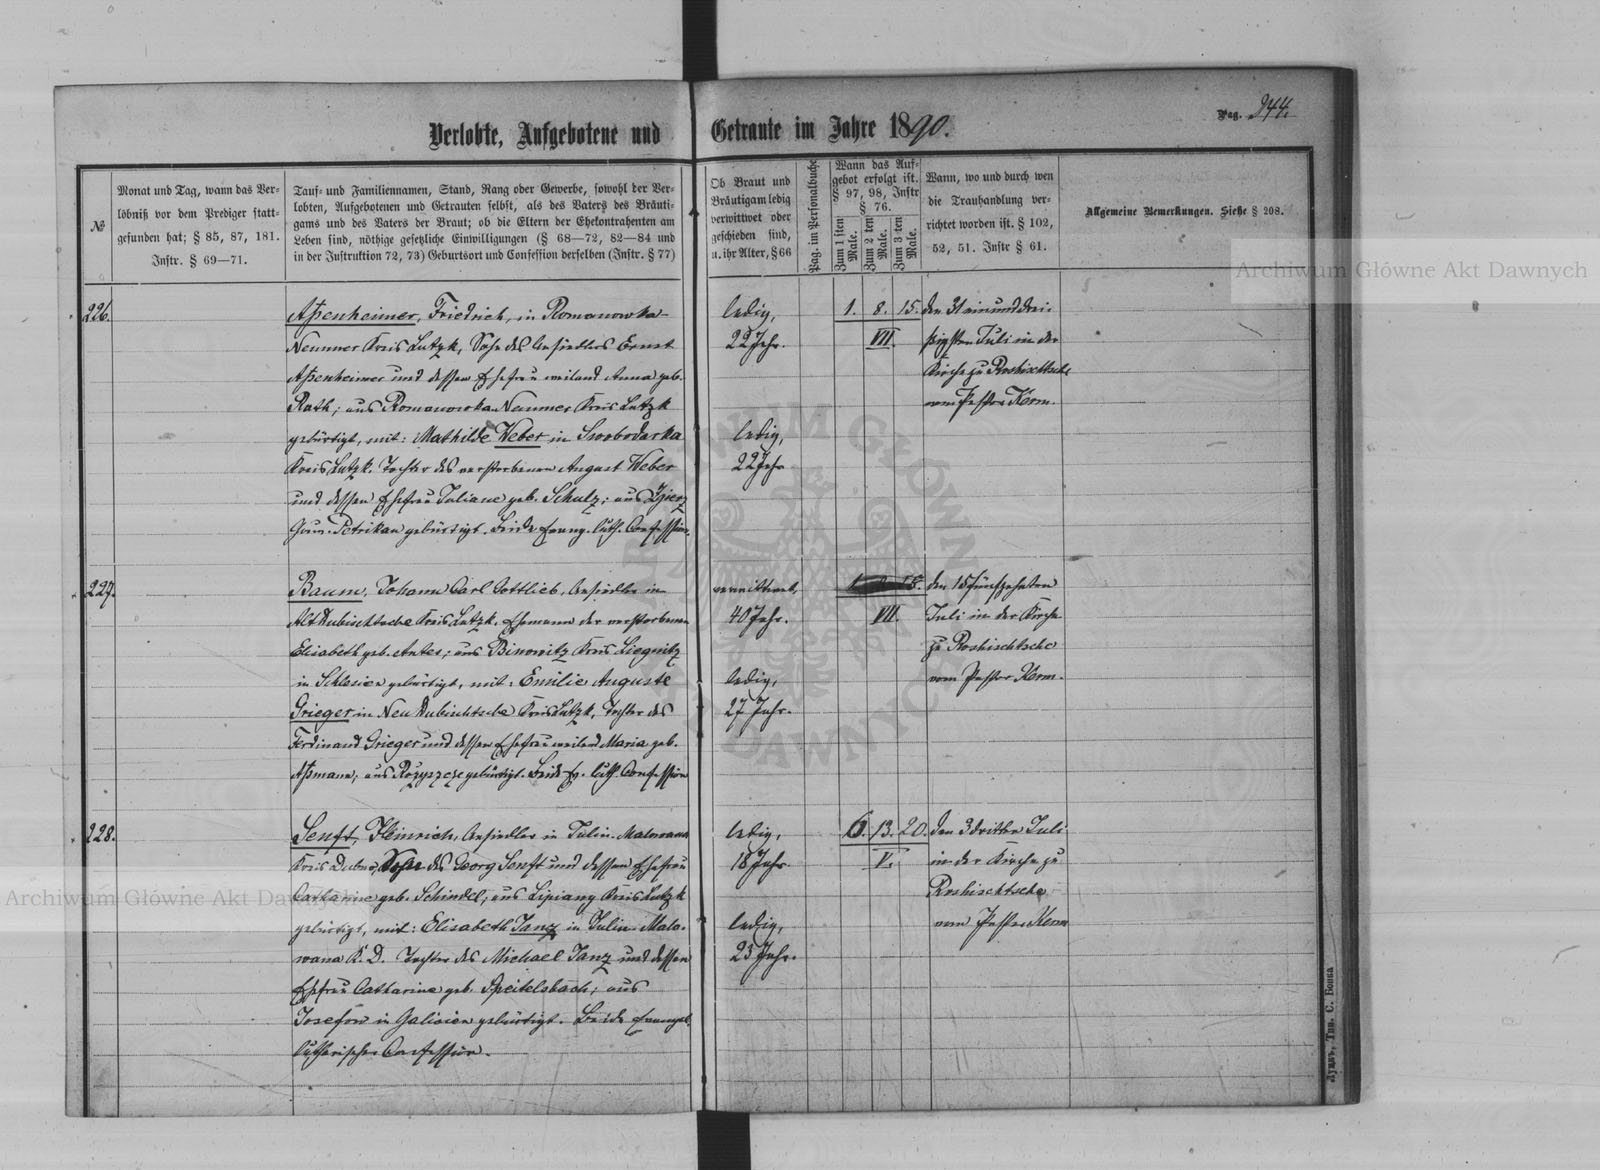 Pag. 344.
Verlobte, Aufgebotene und Getraute im Jahre 1890.
№
Monat und Tag, wann das Ver-
löbniß vor dem Prediger statt-
gefunden hat; § 85, 87, 181.
Instr. § 69—71.
Tauf- und Familiennamen, Stand, Rang oder Gewerbe, sowohl der Ver-
lobten, Aufgebotenen und Getrauten selbst, als des Vaters des Bräuti-
gams und des Vaters der Braut; ob die Eltern der Ehekontrahenten am
Leben sind, nöthige gesetzliche Einwilligungen (§ 68—72, 82—84 und
in der Instruktion 72, 73) Geburtsort und Confession derselben (Instr. § 77)
Ob Braut und
Bräutigam ledig
verwittwet oder
geschieden sind,
u. ihr Alter, § 66
Pag. im Personalbuche
Wann das Auf-
gebot erfolgt ist.
§ 97, 98, Instr
§ 76.
Zum 1 sten Male.
Zum 2 ten Male.
Zum 3 ten Male.
Wann, wo und durch wen
die Trauhandlung ver-
richtet worden ist. § 102,
52, 51. Instr § 61.
Allgemeine Bemerkungen. Siehe § 208.
Archiwum Główne Akt Dawnych
226.
Aßenheimer, Friedrich, in Romanowka-
Neumer Kreis Lutzk, Sohn des Ansiedlers Ernst
Aßenheimer und dessen Ehefrau weiland Anna geb.
Rath; aus Romanowka Neumer Kreis Lutzk
gebürtigt, mit: Mathilde Weber in Swobodarka
Kreis Lutzk. Tochter des verstorbenen August Weber
und dessen Ehefrau Juliane geb. Schulz; aus Zgierz
Gouv. Petrikau gebürtigt. Beide evang. luth. Confession.
ledig,
22 Jahr.
ledig,
22 Jahr
1. 8. 15.
VII.
den 31 einunddrei-
ßigsten Juli in der
Kirche zu Roshischtsche
vom Pastor Kerm.
227.
Baum, Johann Carl Gottlieb, Ansiedler in
Alt Dubischtsche Kreis Lutzk, Ehemann der verstorbenen
Elisabeth geb. Antes; aus Binowitz Kreis Liegnitz
in Schlesien gebürtigt, mit: Emilie Auguste
Grieger in Neu Dubischtsche Kreis Lutzk, Tochter des
Ferdinand Grieger und dessen Ehefrau weiland Maria geb.
Aßmann; aus Rożyszcze gebürtigt. Beide Ev. luth. Confession
verwittwet,
40 Jahr.
ledig,
27 Jahr.
VII.
den 15 fünfzehnten
Juli in der Kirche
zu Roshischtsche
vom Pastor Kerm.
228.
Senft, Heinrich, Ansiedler in Julin-Malowana
Kreis Dubno, Sohn des Georg Senft und dessen Ehefrau
Catharine geb. Schindel; aus Lipiany Kreis Lutzk
gebürtigt, mit: Elisabeth Janz in Julin-Malo-
wana K. D. Tochter des Michael Janz und dessen
Ehefrau Catharine geb. Speitelsbach; aus
Josefow in Galicien gebürtigt. Beide evangel.
lutherischer Confession.
ledig,
18 Jahr
ledig,
23 Jahr.
6. 13. 20.
V.
den 3 dritten Juli
in der Kirche zu
Roshischtsche
vom Pastor Kerm
Archiwum Główne Akt Dawnych
ARCHIWUM GŁÓWNE AKT DAWNYCH
Луцкъ, Тип. С. Бонка